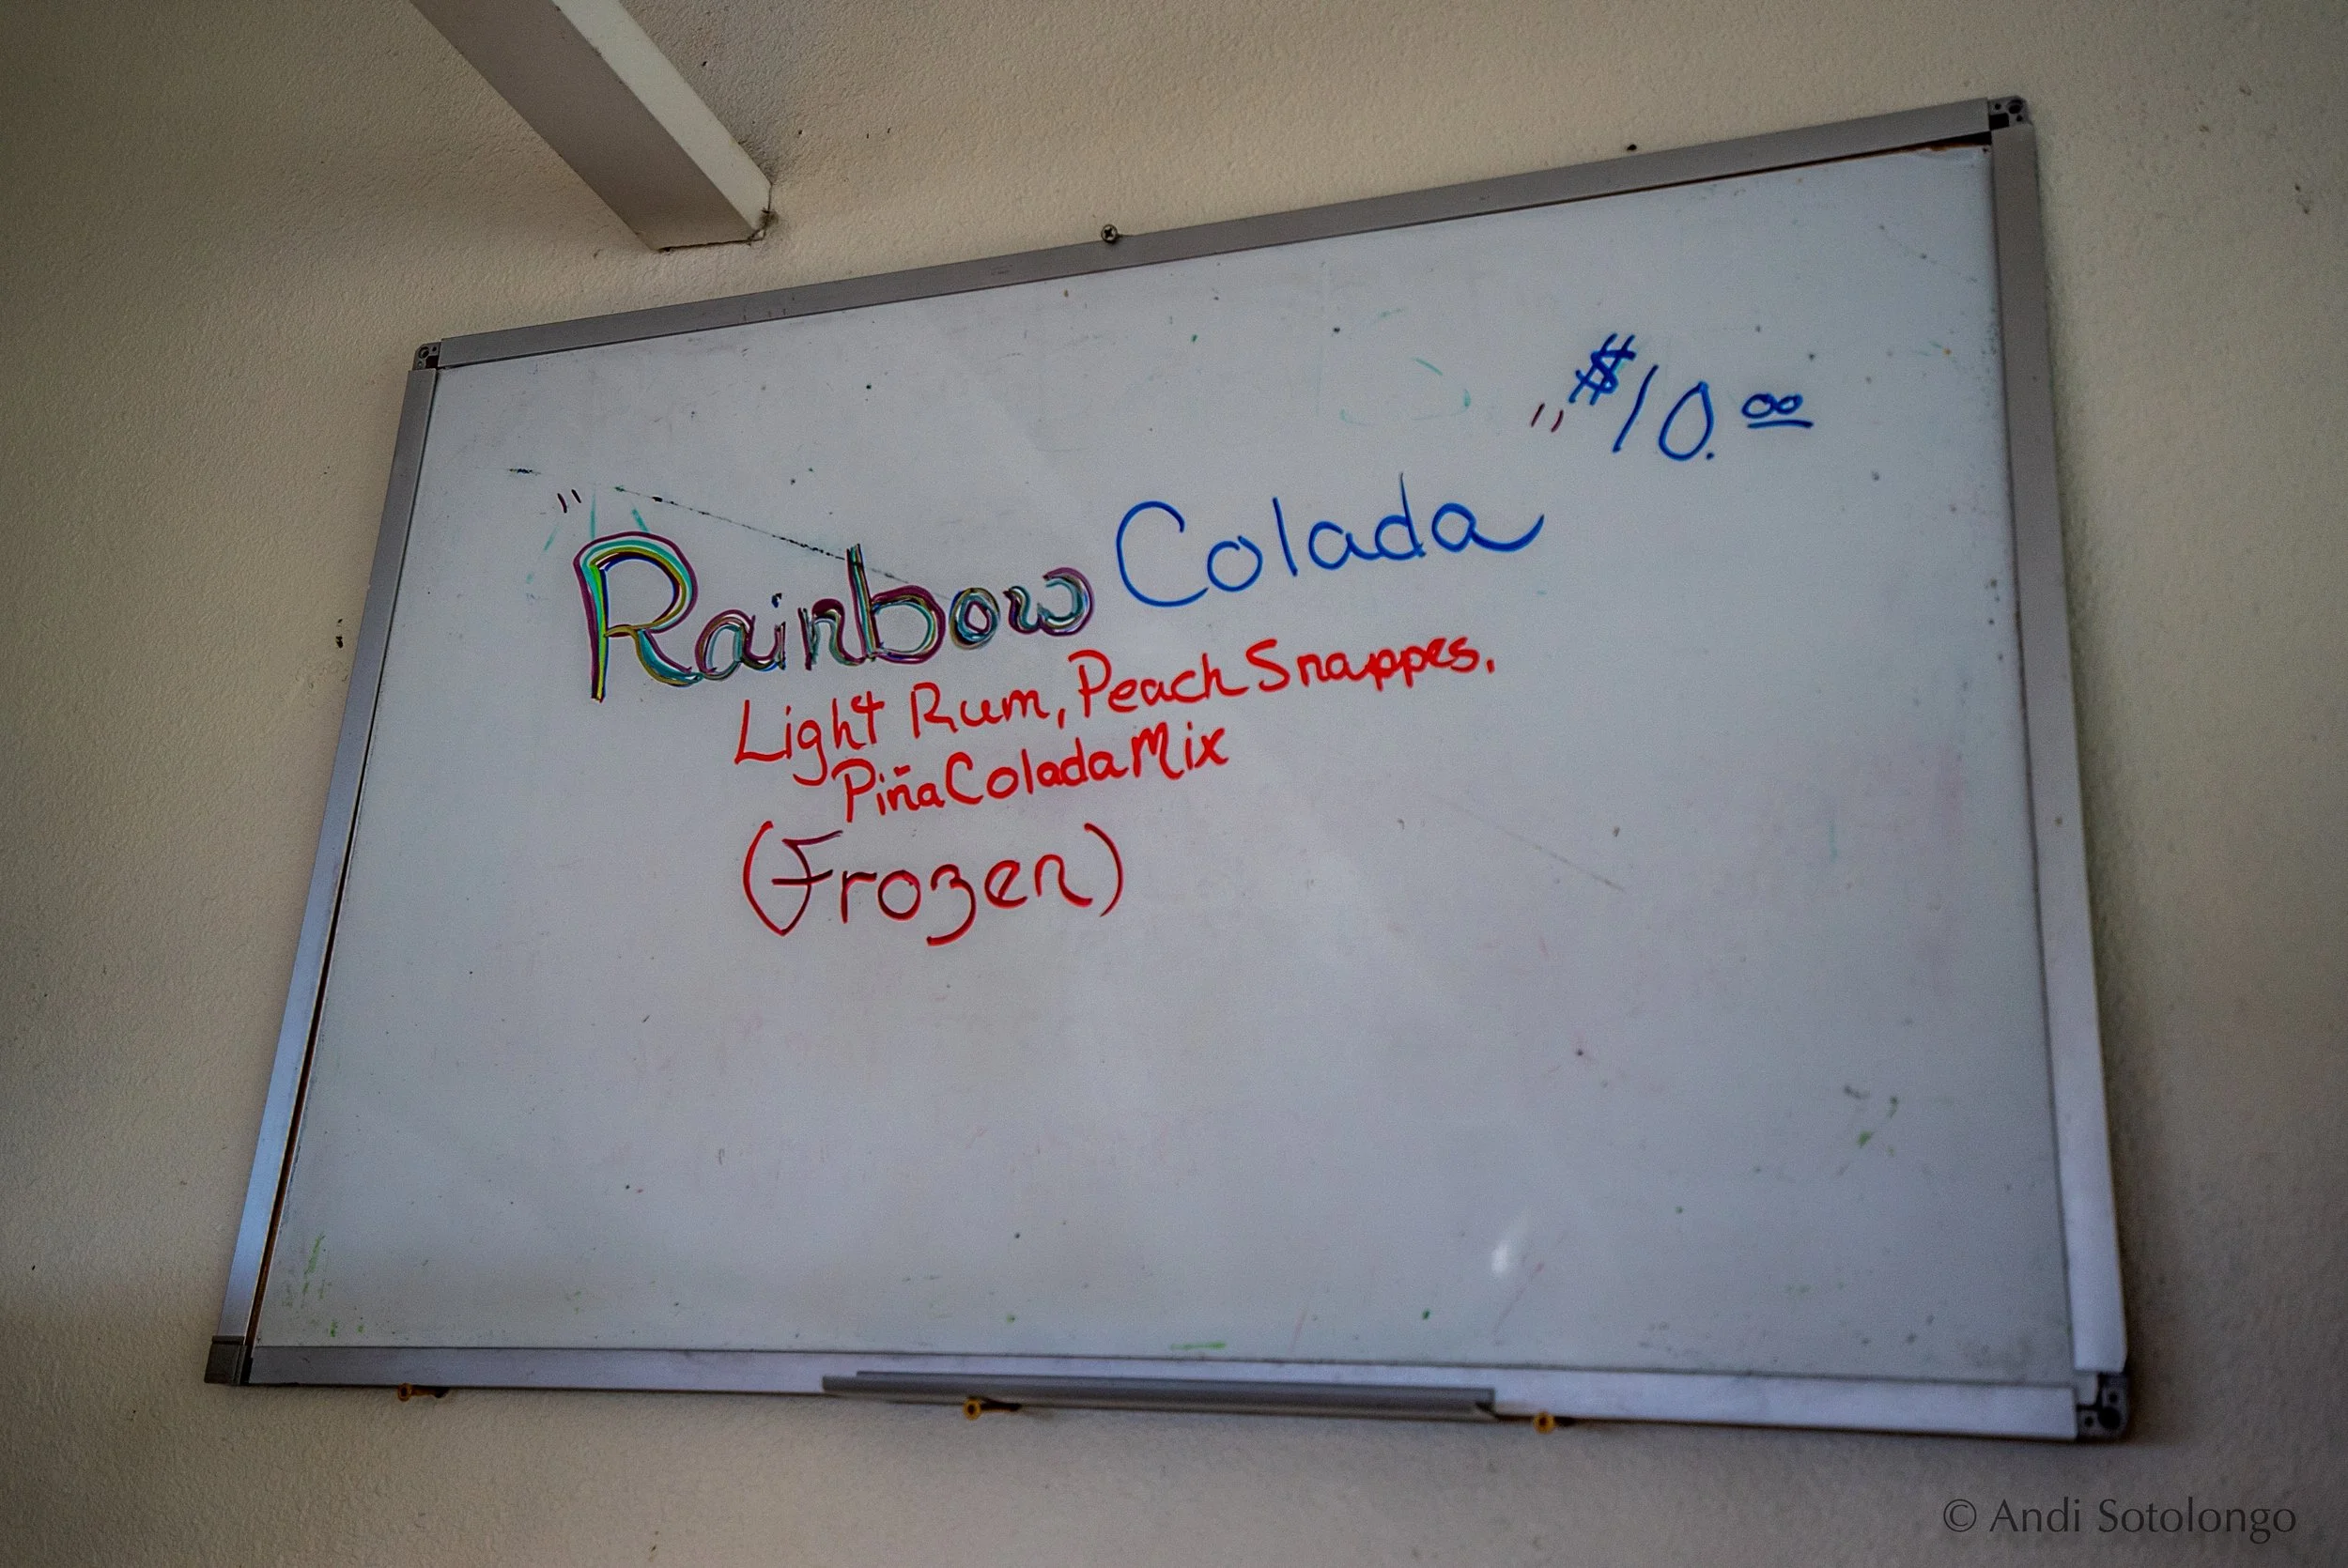 "Rainbow Colada" $10.00
Light Rum, Peach Snappes,
Piña Colada Mix
(Frozen)
© Andi Sotolongo